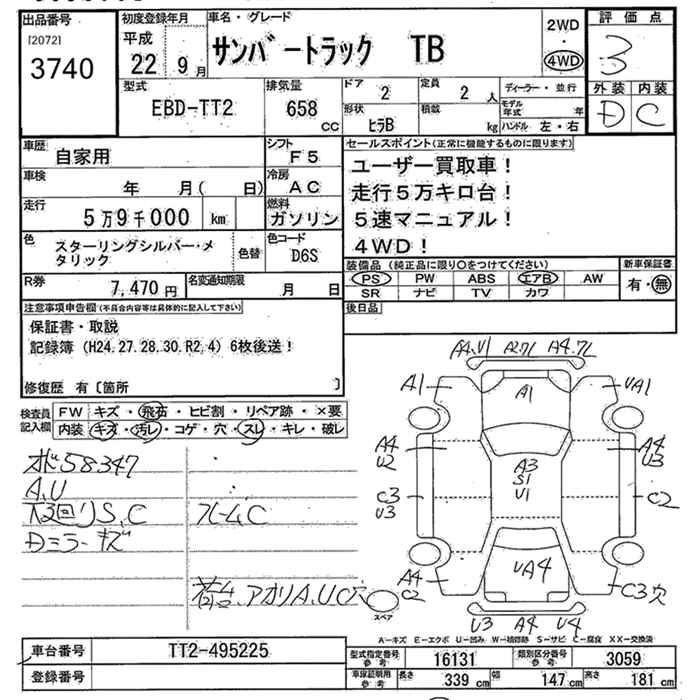 出品番号
[2072]
3740
初度登録年月
平成
22 9 月
車名・グレード
サンバートラック TB
2WD
・
4WD
評価点
3
外装 内装
D C
型式
EBD-TT2
排気量
658
cc
ドア
2
定員
2 人
形状
ヒラB
積載
kg
ディーラー・並行
モデル年式 年
ハンドル 左・右
車歴
自家用
シフト
F5
車検
年 月( 日)
冷房
AC
走行
5万9千000 km
燃料
ガソリン
色
スターリングシルバー・メ
タリック
色替
色コード
D6S
R券
7,470 円
名変通知期限
月 日
セールスポイント(正常に機能するものに限ります)
ユーザー買取車!
走行5万キロ台!
5速マニュアル!
4WD!
装備品(純正品に限り○をつけてください)
PS PW ABS エアB AW
SR ナビ TV カワ
新車保証書
有・無
後日品
注意事項申告欄(不具合内容等は具体的に記入して下さい)
保証書・取説
記録簿(H24.27.28.30.R2.4)6枚後送!
修復歴 有〔箇所 〕
検査員
記入欄
FW キズ・飛石・ヒビ割・リペア跡・×要
内装 キズ・汚レ・コゲ・穴・スレ・キレ・破レ
メーター58347
A,U
下回りS,C
Dミラーキズ
フレームC
荷台アオリA,U,C穴
A4,V1 A2,7L A4,7L
A1 A1 UA1
A4
U2
A3
S1
U1
A4
U3
C3
U3
C2
UA4
A4
C2
C3穴
スペア
U3 A4 U4
A-キズ E-エクボ U-凹み W-補修跡 S-サビ C-腐食 XX-交換済
車台番号
TT2-495225
登録番号
型式指定番号
参考
16131
類別区分番号
参考
3059
車庫証明用
参考
長さ 339 cm 幅 147 cm 高さ 181 cm